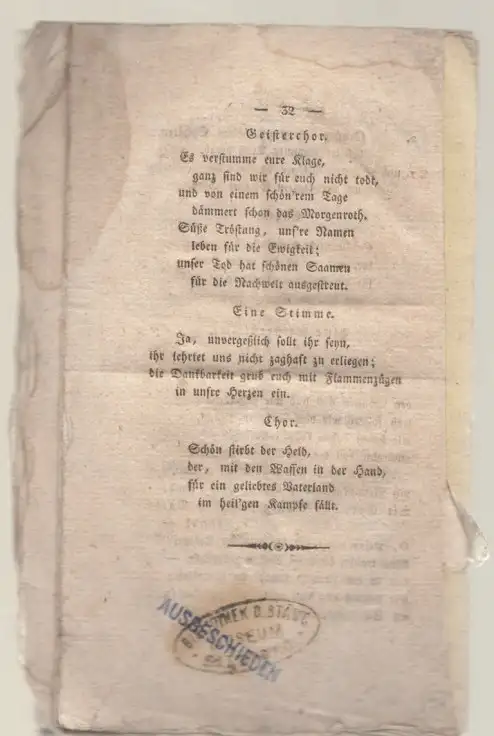 — 32 —
Geisterchor.
Es verstumme eure Klage,
ganz sind wir für euch nicht todt,
und von einem schön'rem Tage
dämmert schon das Morgenroth.
Süße Tröstung, uns're Namen
leben für die Ewigkeit;
unser Tod hat schönen Saamen
für die Nachwelt ausgestreut.
Eine Stimme.
Ja, unvergeßlich sollt ihr seyn,
ihr lehrtet uns nicht zaghaft zu erliegen;
die Dankbarkeit grub euch mit Flammenzügen
in unsre Herzen ein.
Chor.
Schön stirbt der Held,
der, mit den Waffen in der Hand,
für ein geliebtes Vaterland
im heil'gen Kampfe fällt.
AUSGESCHIEDEN